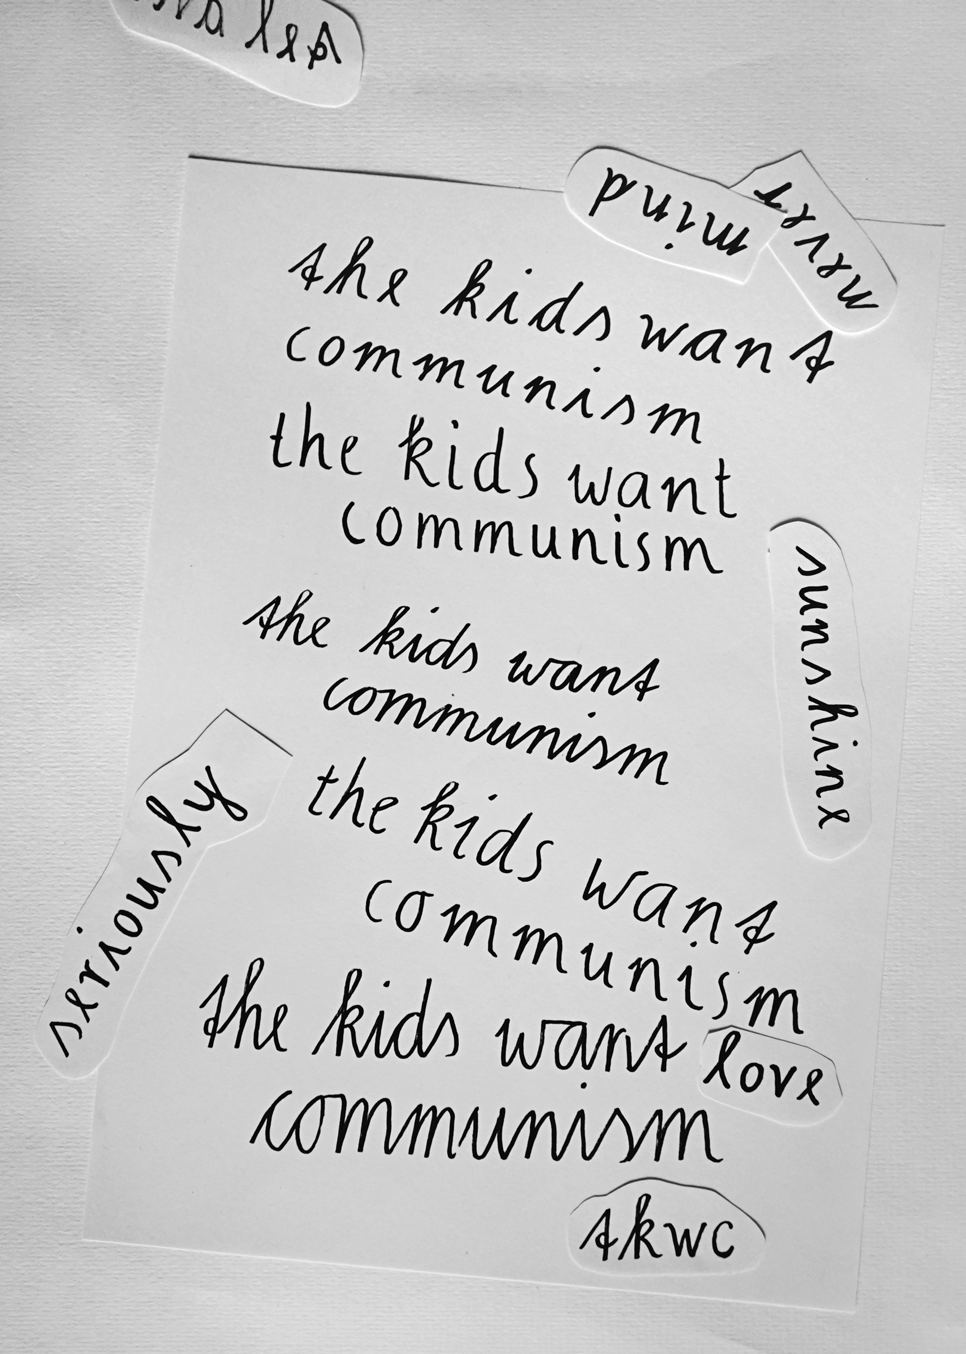 mind
never
the kids want
communism
the kids want
communism
sunshine
the kids want
communism
seriously
the kids want
communism
the kids want
love
communism
tkwc